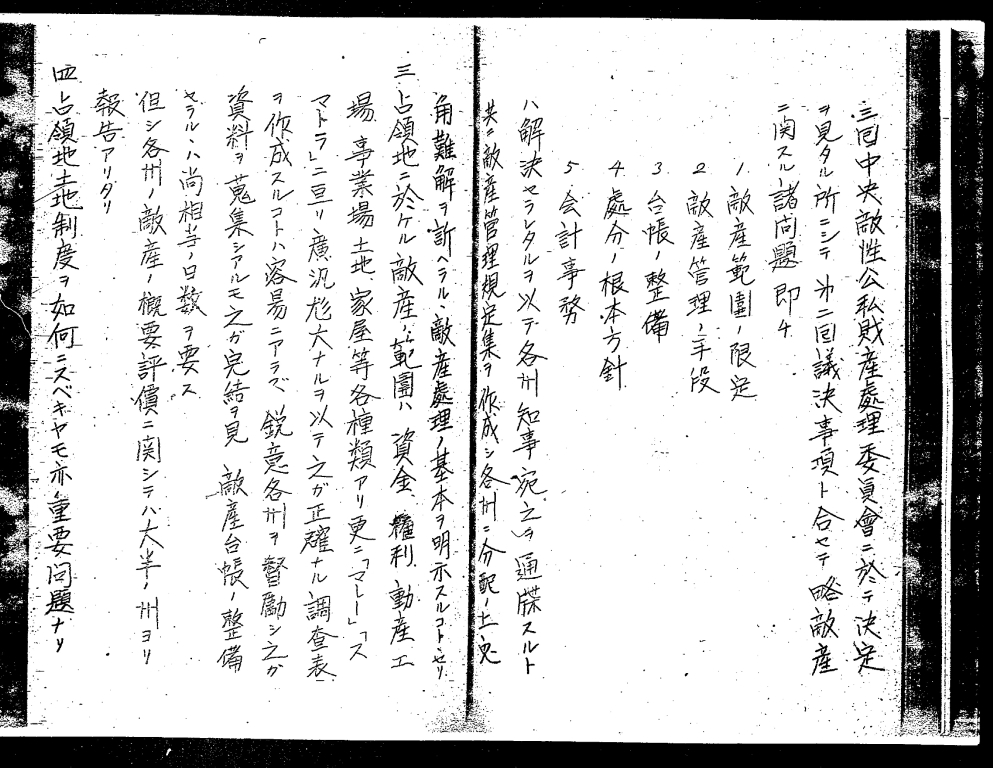 三回中央敵性公私財産處理委員會ニ於テ決定
ヲ見タル所ニシテ第二回議決事項ト合セテ略敵産
ニ関スル諸問題即チ
1 敵産範圍ノ限定
2 敵産管理ノ手段
3 台帳ノ整備
4 處分ノ根本方針
5 会計事務
ハ解決セラレタルヲ以テ各州知事宛之ヲ通牒スルト
共ニ敵産管理規定集ヲ作成シ各州ニ分配ノ上兎
角難解ヲ訴ヘラル敵産處理ノ基本ヲ明示スルコトヽセリ
三 占領地ニ於ケル敵産ノ範圍ハ資金、權利、動産、工
場、事業場、土地、家屋等各種類アリ更ニ「マレー」「ス
マトラ」ニ亘リ廣汎尨大ナルヲ以テ之ガ正確ナル調査表
ヲ作成スルコトハ容易ニアラズ鋭意各州ヲ督勵シ之ガ
資料ヲ蒐集シアルモ之ガ完結ヲ見敵産台帳ノ整備
セラルヽハ尚相当ノ日数ヲ要ス
但シ各州ノ敵産ノ概要評價ニ関シテハ大半ノ州ヨリ
報告アリタリ
四 占領地土地制度ヲ如何ニスベキヤモ亦重要問題ナリ